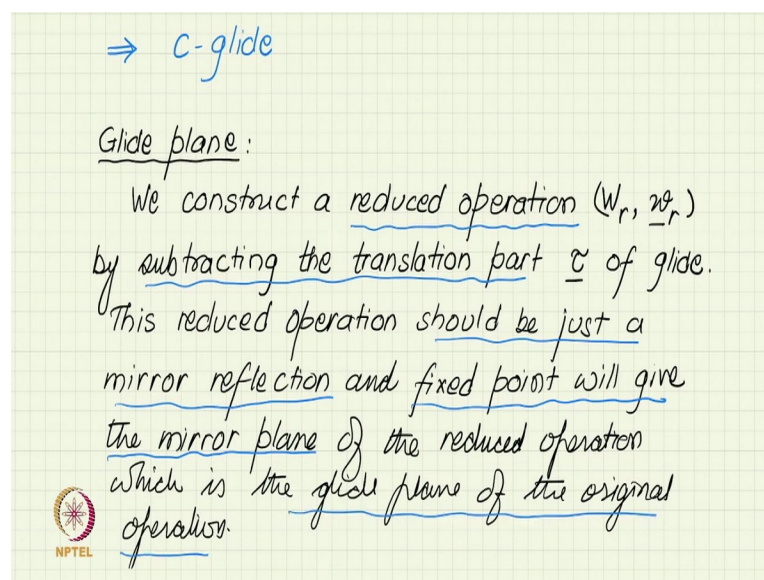 ⇒ c-glide
Glide plane:
We construct a reduced operation (Wr, wr)
by subtracting the translation part τ of glide.
This reduced operation should be just a
mirror reflection and fixed point will give
the mirror plane of the reduced operation
which is the glide plane of the original
operation.
NPTEL